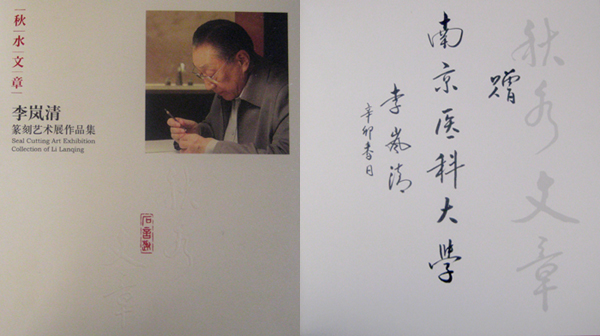 秋水文章
李岚清
篆刻艺术展作品集
Seal Cutting Art Exhibition
Collection of Li Lanqing
秋水文章
贈
南京医科大學
李岚清
辛卯春日